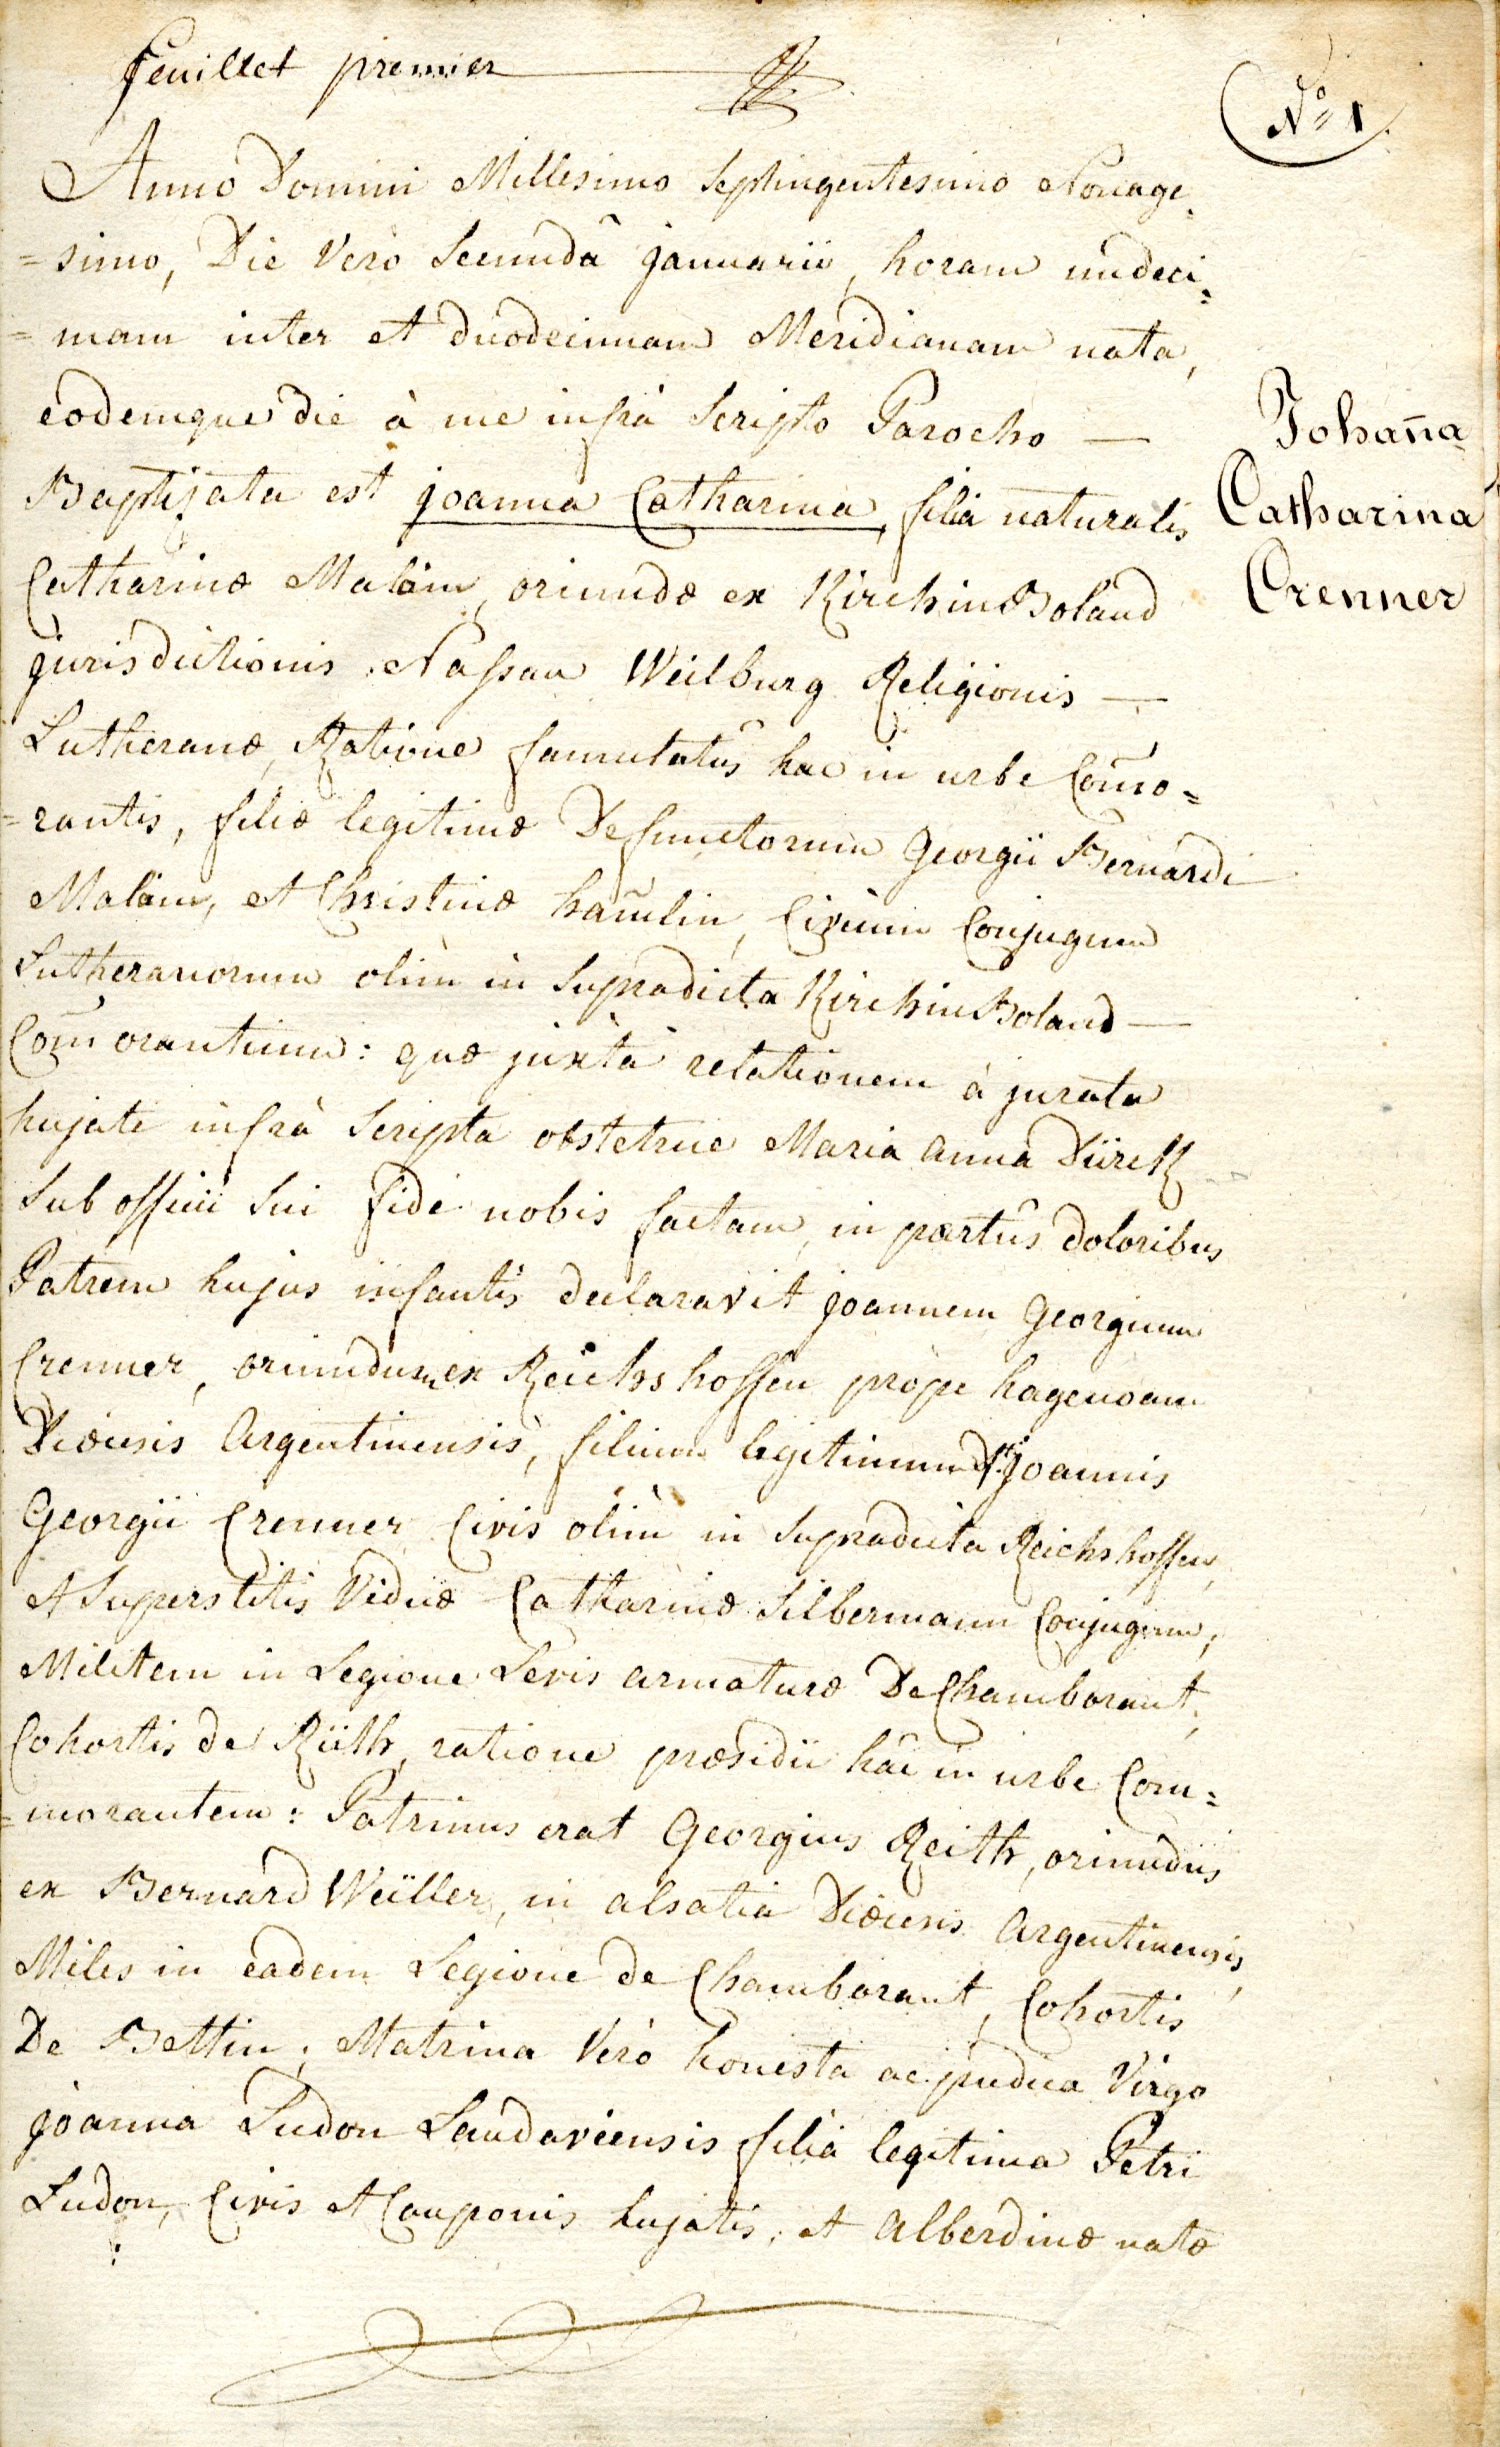 feuillet premier
N° 1
Anno Domini Millesimo Septingentesimo Nonage=
=simo, Die Vero Secundâ januarii, horam undeci=
=mam inter et duodecimam Meridianam nata,
eodemque die à me infrà Scripto Parocho —
Baptizata est joanna Catharina, filia naturalis
Johan̄a
Catharina
Crenner
Catharinæ Maläin, oriundæ ex Kirchin Boland
jurisdictionis Nassau Weilburg Religionis —
Lutheranæ, Ratione famulatûs hac in urbe Com̄o=
=rantis, filiæ legitimæ Defunctorum Georgii Bernardi
Maläin, et Christinæ ham̄lin, Civium Conjugum
Lutheranorum olim in Supradicta Kirchin Boland —
Com̄orantium: quæ juxtà relationem à jurata
hujate infrà Scripta obstetrice Maria anna Dürck
Sub officii Sui fide nobis factam, in partûs doloribus
Patrem hujus infantis declaravit joannem Georgium
Crenner, oriundum ex Reichshoffen propè hagenoam
Diœcesis Argentinensis, filium legitimum joannis
Georgii Crenner Civis olim in Supradicta Reichshoffen,
et Superstitis Viduæ Catharinæ Silbermann Conjugum,
Militem in Legione Levis armaturæ De Chamborant,
Cohortis de Rüth, ratione præsidii hâc in urbe Com=
=morantem: Patrinus erat Georgius Reith, oriundus
ex Bernard Weüller, in alsatia Diœcesis Argentinensis,
Miles in eadem Legione de Chamborant, Cohortis
De Bettin; Matrina Verò honesta ac pudica Virgo
joanna Ludon Landaviensis filia legitima Petri
Ludon, Civis et Cauponis hujatis, et Alberdinæ natæ